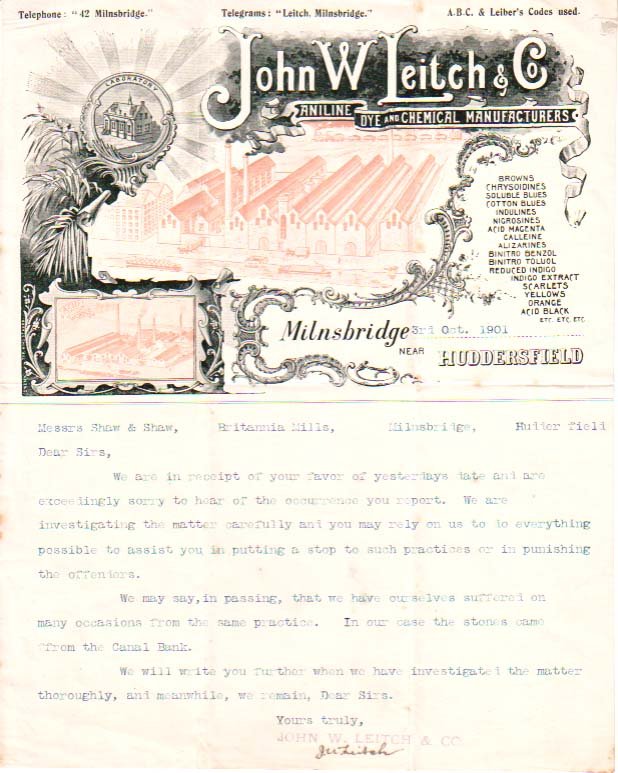 Telephone: "42 Milnsbridge." Telegrams: "Leitch, Milnsbridge." A.B.C. & Leiber's Codes used.
LABORATORY
John W Leitch & Co
ANILINE DYE AND CHEMICAL MANUFACTURERS
BROWNS
CHRYSOIDINES
SOLUBLE BLUES
COTTON BLUES
INDULINES
NIGROSINES
ACID MAGENTA
GALLEINE
ALIZARINES
BINITRO BENZOL
BINITRO TOLUOL
REDUCED INDIGO
INDIGO EXTRACT
SCARLETS
YELLOWS
ORANGE
ACID BLACK
ETC. ETC. ETC.
Milnsbridge 3rd Oct. 1901
NEAR HUDDERSFIELD
Messrs Shaw & Shaw, Britannia Mills, Milnsbridge, Hudder field
Dear Sirs,
We are in receipt of your favor of yesterdays date and are
exceedingly sorry to hear of the occurrence you report. We are
investigating the matter carefully and you may rely on us to do everything
possible to assist you in putting a stop to such practices or in punishing
the offenders.
We may say,in passing, that we have ourselves suffered on
many occasions from the same practice. In our case the stones came
from the Canal Bank.
We will write you further when we have investigated the matter
thoroughly, and meanwhile, we remain, Dear Sirs.
Yours truly,
JOHN W. LEITCH & CO.
JW Leitch